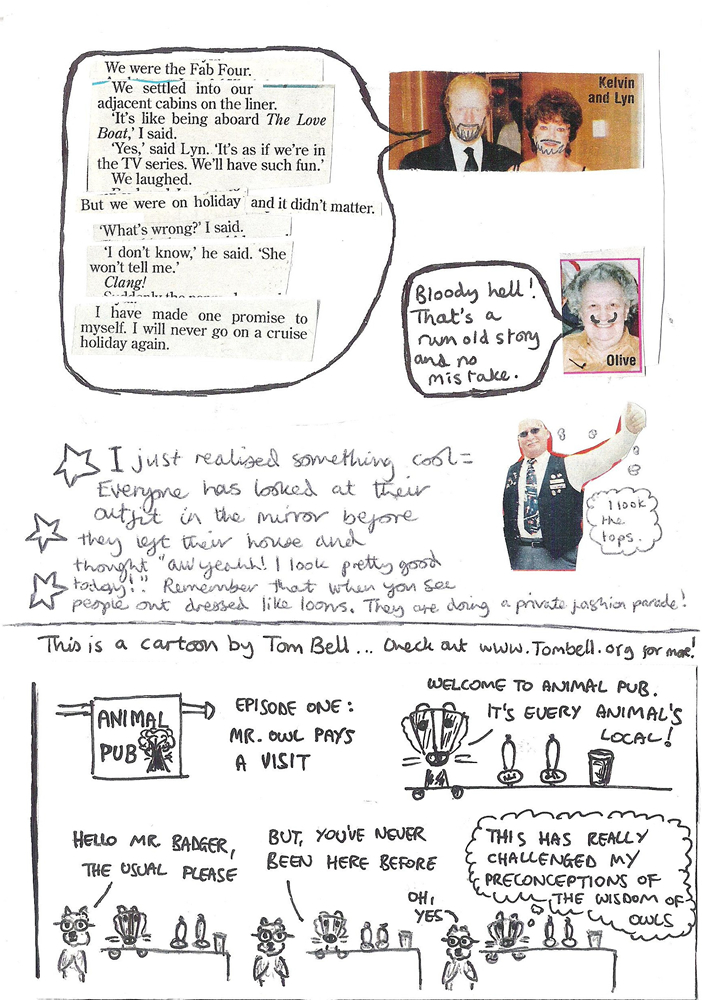 We were the Fab Four.
We settled into our
adjacent cabins on the liner.
'It's like being aboard The Love
Boat,' I said.
'Yes,' said Lyn. 'It's as if we're in
the TV series. We'll have such fun.'
We laughed.
But we were on holiday and it didn't matter.
'What's wrong?' I said.
'I don't know,' he said. 'She
won't tell me.'
Clang!
I have made one promise to
myself. I will never go on a cruise
holiday again.
Kelvin
and Lyn
Bloody hell!
That's a
rum old story
and no
mistake.
Olive
I just realised something cool =
Everyone has looked at their
outfit in the mirror before
they left their house and
thought "aw yeahh! I look pretty good
today!". Remember that when you see
people out dressed like loons. They are doing a private fashion parade!
I look
the
tops.
This is a cartoon by Tom Bell... Check out www.Tombell.org for more!
ANIMAL
PUB
EPISODE ONE:
MR. OWL PAYS
A VISIT
WELCOME TO ANIMAL PUB.
IT'S EVERY ANIMAL'S
LOCAL!
HELLO MR. BADGER,
THE USUAL PLEASE
BUT, YOU'VE NEVER
BEEN HERE BEFORE
OH,
YES
THIS HAS REALLY
CHALLENGED MY
PRECONCEPTIONS OF
THE WISDOM OF
OWLS